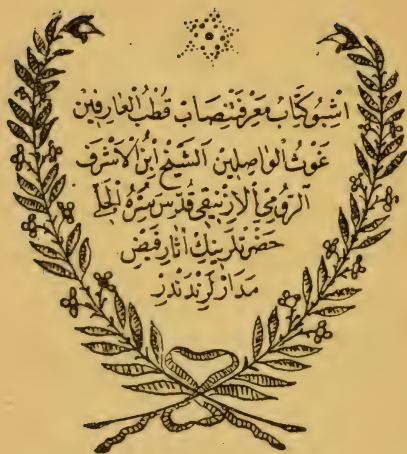 اشبو كتاب معرفتنصاب قطب العارفين
غوث الواصلين الشيخ ابن الاشرف
الرومي الازنيقي قدس سره الجلي
حضرتلرينك اثار فيض
مدارلرندندر